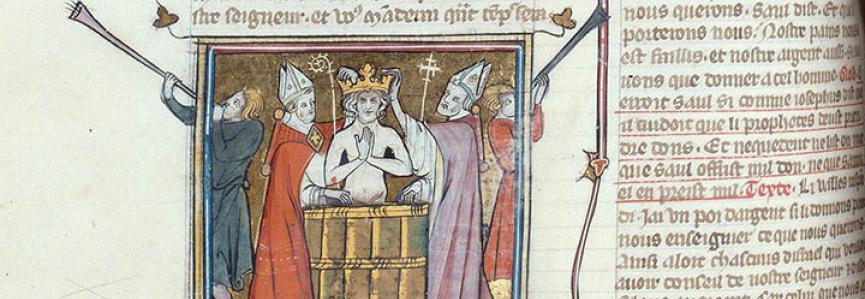 stre seigneur. et voꝰ m̃adem q̃it tẽp̃ sera
nous querons. Saul dist. Et q
porterons nous. Nostre pains n
est faillis. et nostre argent aussi
uons que donner a cel homme. Glo
enroit Saul si comme iosephus dist
il cuidoit que li prophetes deust pr
die dons. Et nequetent ne list on
que Saul offrist nul don. ne que sa
el en preist nul. Texte. Li valles
di. Jai vn poi dargent si li donrons
nous enseignier ce que nous quer
Ainsi aloit chascuns dismes qui vo
auoir conseil de nostre seigneur
que nous